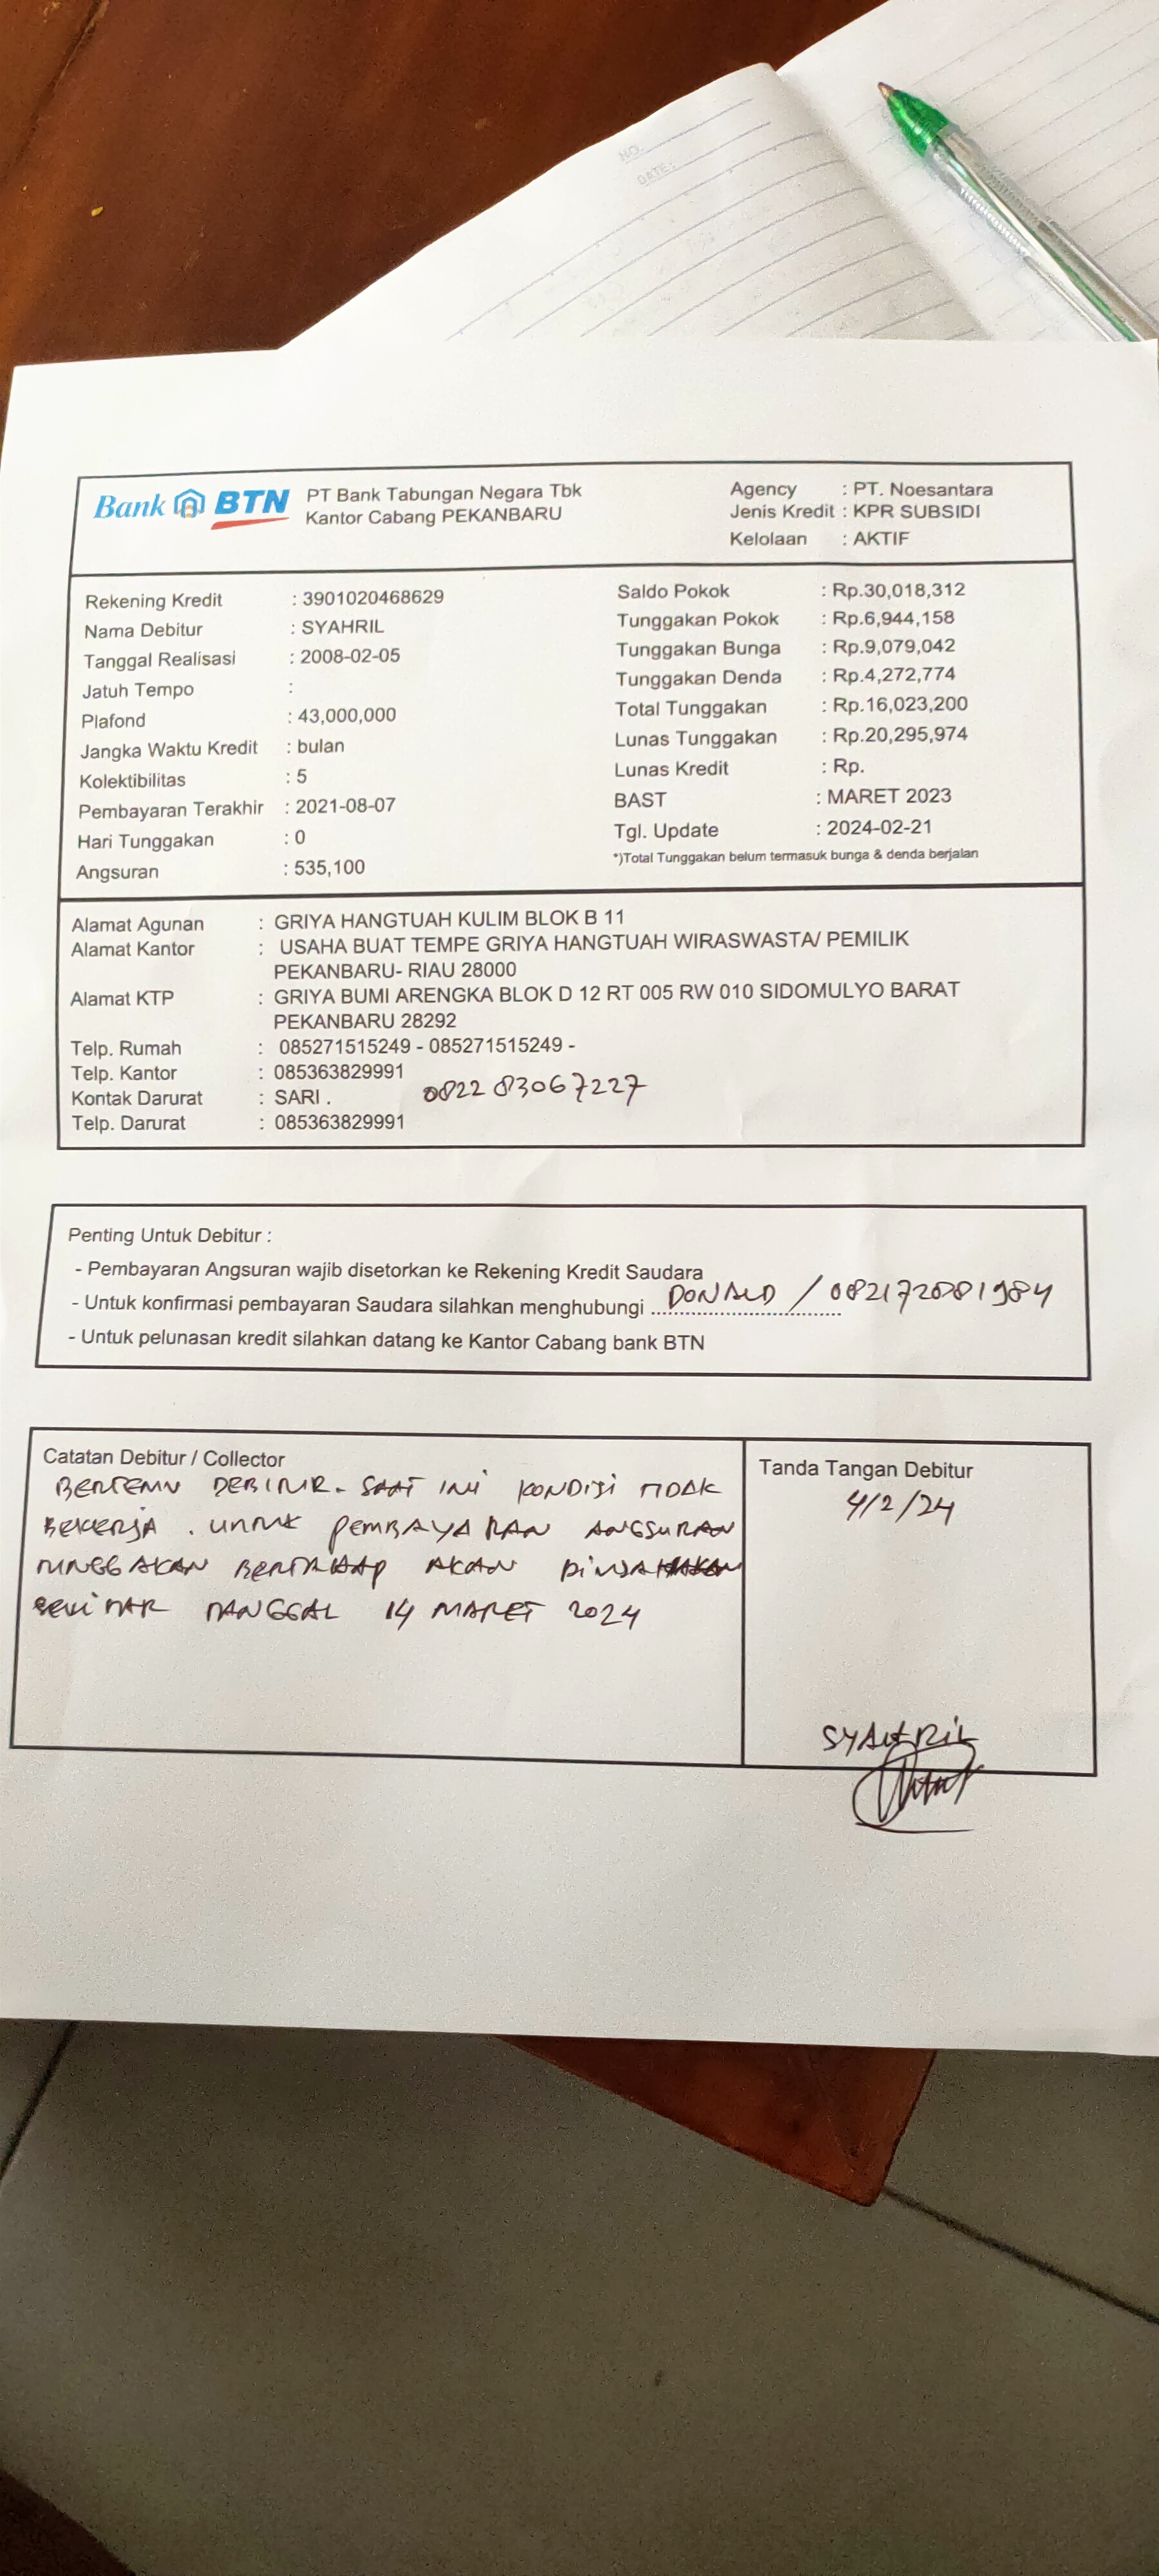 NO.
DATE:
Bank BTN
PT Bank Tabungan Negara Tbk
Kantor Cabang PEKANBARU
Agency : PT. Noesantara
Jenis Kredit : KPR SUBSIDI
Kelolaan : AKTIF
Rekening Kredit : 3901020468629
Nama Debitur : SYAHRIL
Tanggal Realisasi : 2008-02-05
Jatuh Tempo :
Plafond : 43,000,000
Jangka Waktu Kredit : bulan
Kolektibilitas : 5
Pembayaran Terakhir : 2021-08-07
Hari Tunggakan : 0
Angsuran : 535,100
Saldo Pokok : Rp.30,018,312
Tunggakan Pokok : Rp.6,944,158
Tunggakan Bunga : Rp.9,079,042
Tunggakan Denda : Rp.4,272,774
Total Tunggakan : Rp.16,023,200
Lunas Tunggakan : Rp.20,295,974
Lunas Kredit : Rp.
BAST : MARET 2023
Tgl. Update : 2024-02-21
*)Total Tunggakan belum termasuk bunga & denda berjalan
Alamat Agunan : GRIYA HANGTUAH KULIM BLOK B 11
Alamat Kantor : USAHA BUAT TEMPE GRIYA HANGTUAH WIRASWASTA/ PEMILIK
PEKANBARU- RIAU 28000
Alamat KTP : GRIYA BUMI ARENGKA BLOK D 12 RT 005 RW 010 SIDOMULYO BARAT
PEKANBARU 28292
Telp. Rumah : 085271515249 - 085271515249 -
Telp. Kantor : 085363829991
Kontak Darurat : SARI . 0822 83067227
Telp. Darurat : 085363829991
Penting Untuk Debitur :
- Pembayaran Angsuran wajib disetorkan ke Rekening Kredit Saudara
- Untuk konfirmasi pembayaran Saudara silahkan menghubungi DONALD / 082172081984
- Untuk pelunasan kredit silahkan datang ke Kantor Cabang bank BTN
Catatan Debitur / Collector
BERTEMU DEBITUR. SAAT INI KONDISI TIDAK
BEKERJA. UNTUK PEMBAYARAN ANGSURAN
TUNGGAKAN BERTAHAP AKAN
SEKITAR TANGGAL 14 MARET 2024
Tanda Tangan Debitur
4/2/24
SYAHRIL